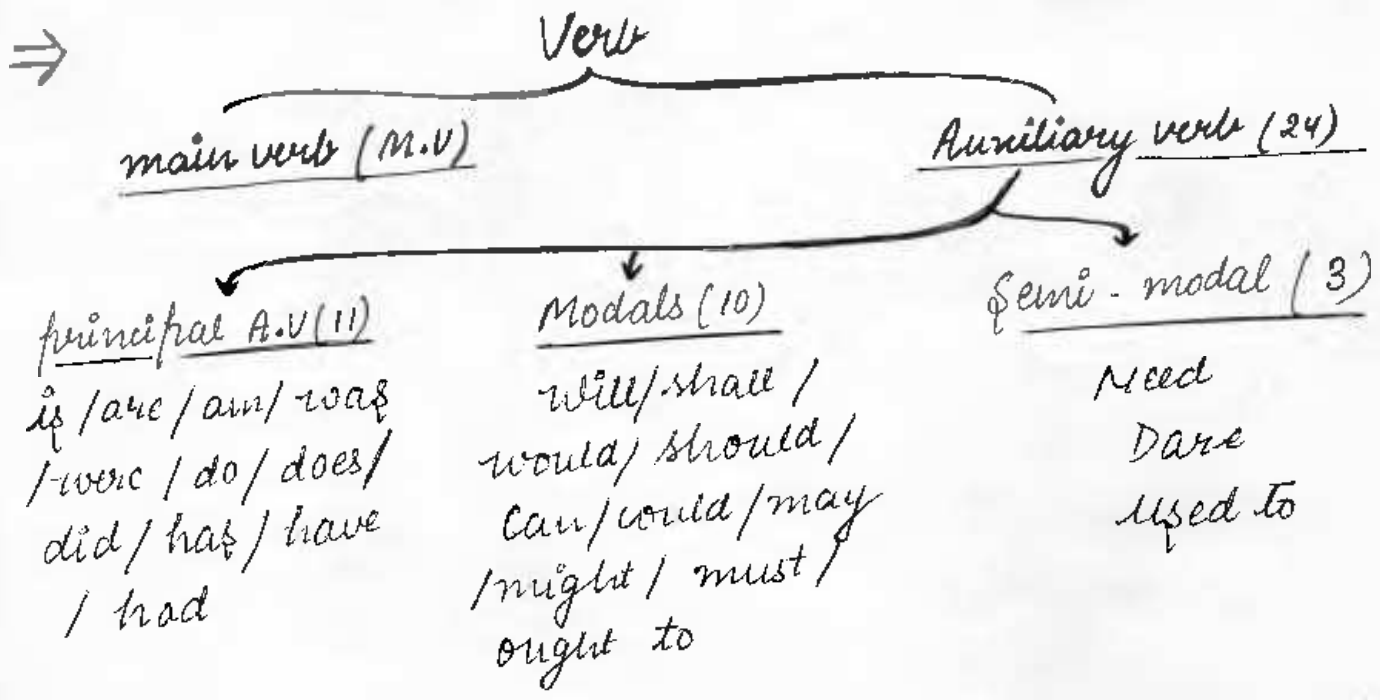 ⇒ Verb
main verb (M.V)
Auxiliary verb (24)
principal A.V (11)
is / are / am / was
/ were / do / does /
did / has / have
/ had
Modals (10)
will / shall /
would / should /
Can / could / may
/ might / must /
ought to
Semi - modal (3)
Need
Dare
Used to